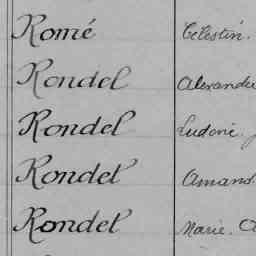 Romé Célestin.
Rondel Alexandre
Rondel Ludovic.
Rondet Amand.
Rondet Marie.